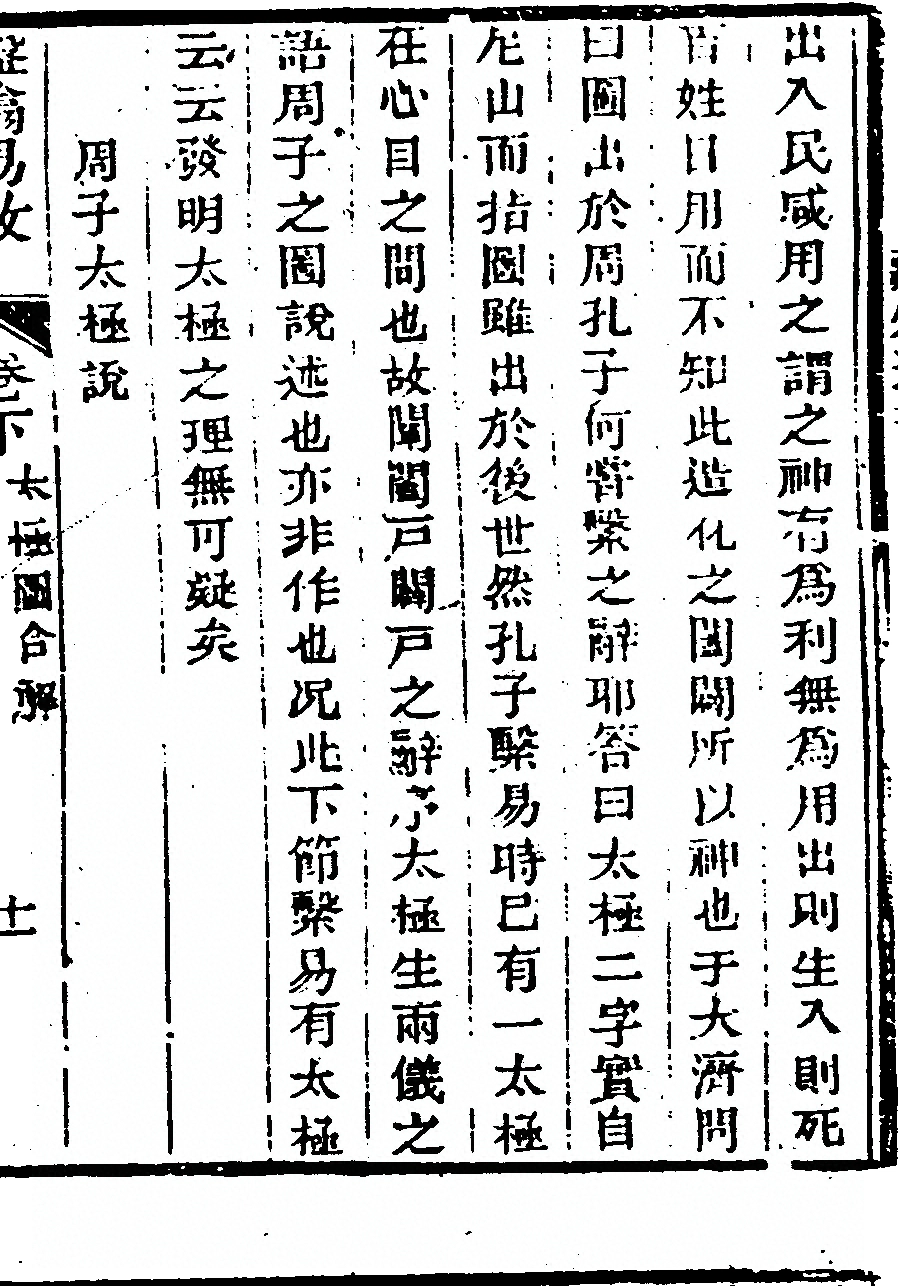 出入民咸用之謂之神有爲利無爲用出則生入則死
百姓日用而不知此造化之闔闢所以神也于大濟問
曰圖出於周孔子何嘗繫之辭耶答曰太極二字實自
尼山而指圖雖出於後世然孔子繫易時已有一太極
在心目之間也故闡闔戸闢戸之辭予太極生兩儀之
語周子之圖說述也亦非作也况此下節繫易有太極
云云發明太極之理無可疑矣
周子太極說
易攷
卷下
太極圖合解
十